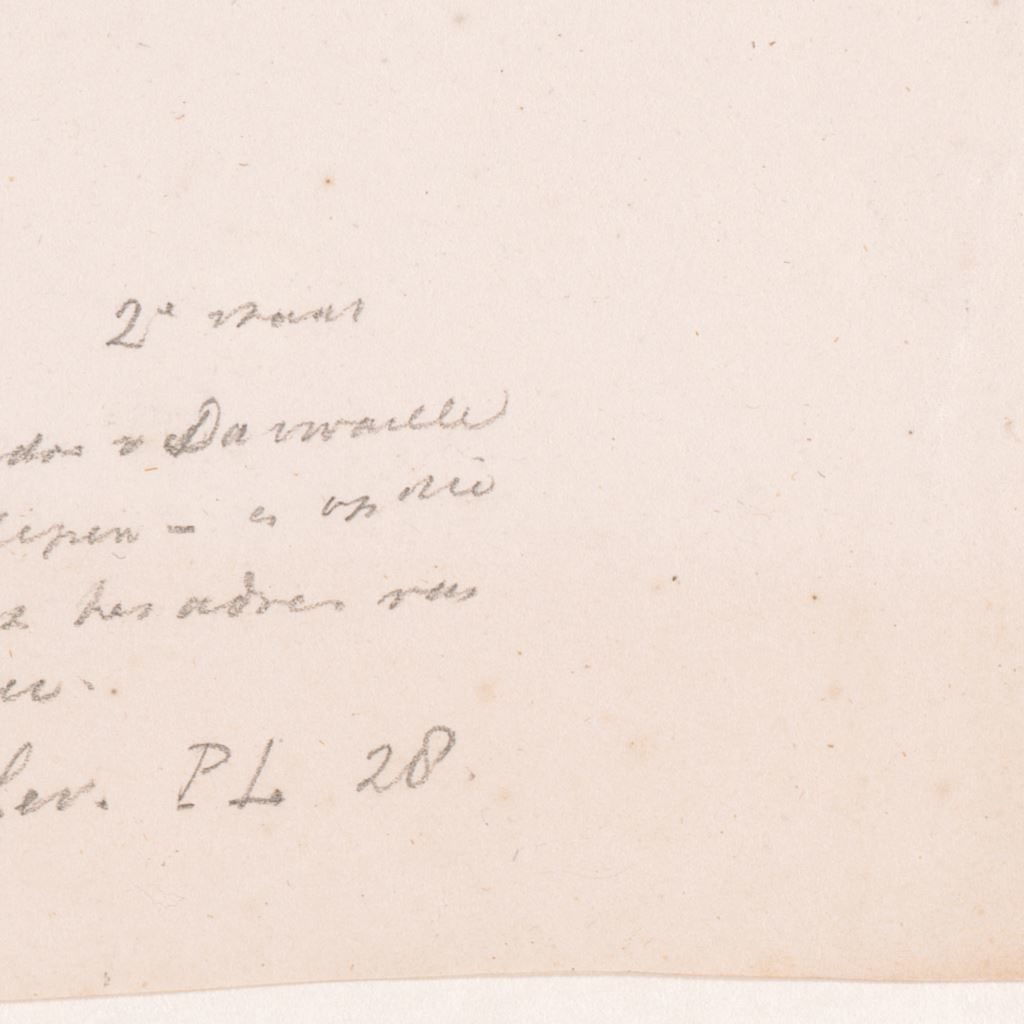 2e staat
dos v Darwaille
epen - is op die
het adres van
ler. P L 28.